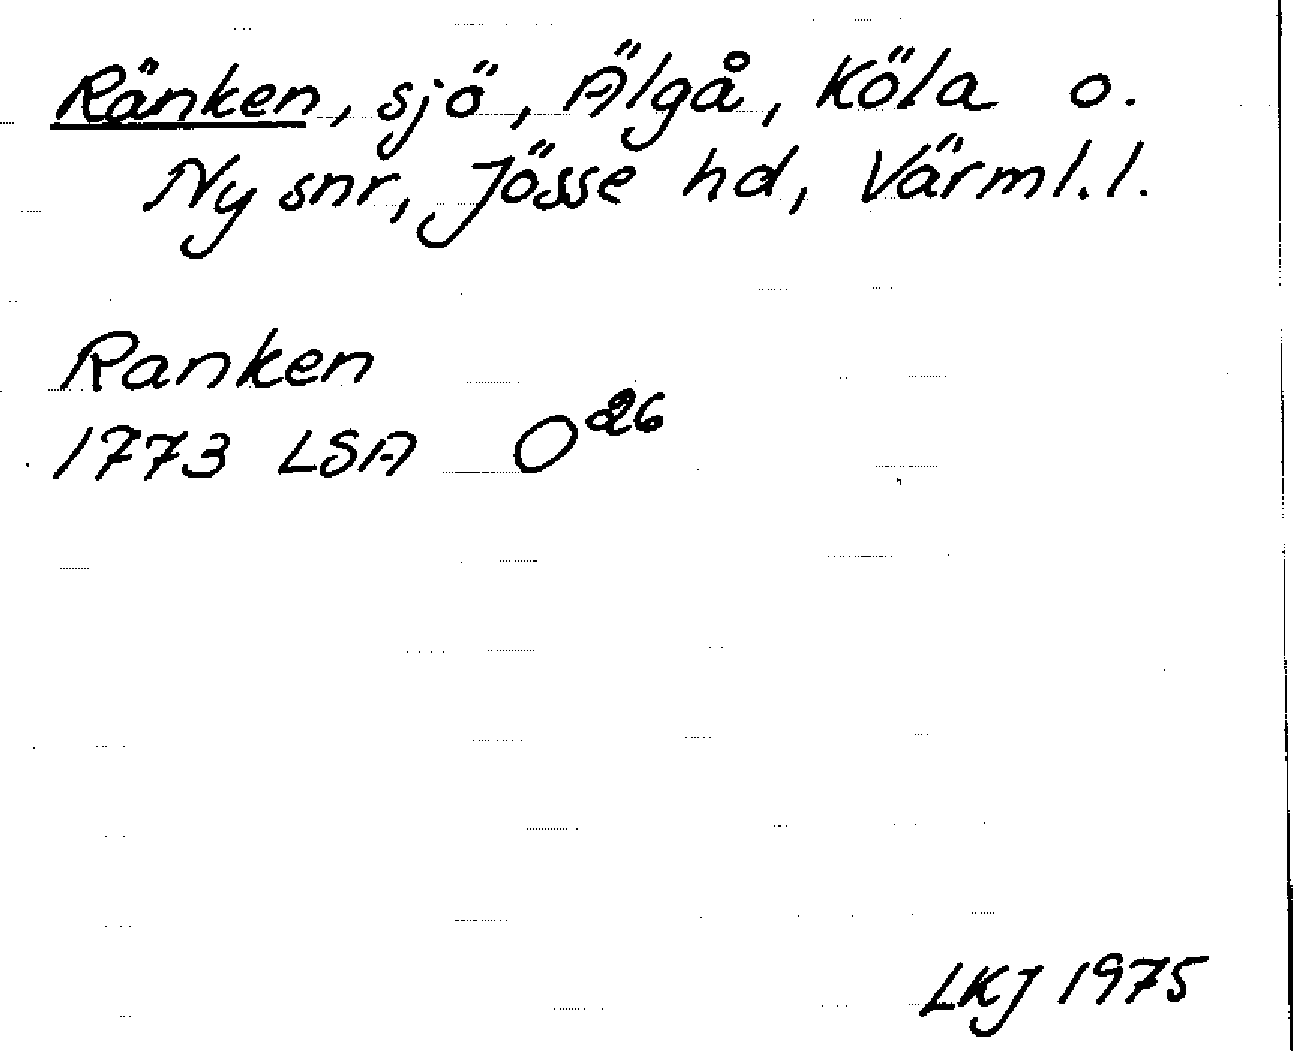 Ränken, sjö, Älgå, Köla o.
Ny snr, Jösse hd, Värml.l.
Ranken
1773 LSA O²⁶
LKJ 1975